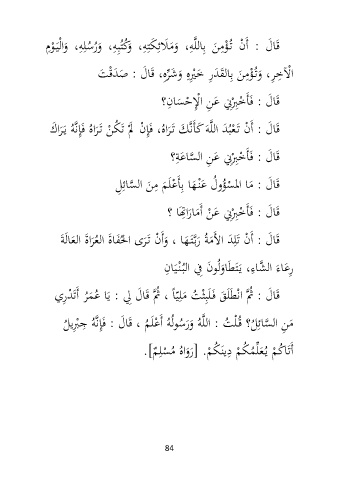 قَالَ : أَنْ تُؤْمِنَ بِاللَّهِ، وَمَلَائِكَتِهِ، وَكُتُبِهِ، وَرُسُلِهِ، وَالْيَوْمِ
الْآخِرِ، وَتُؤْمِنَ بِالقَدَرِ خَيْرِهِ وَشَرِّهِ، قَالَ : صَدَقْتَ
قَالَ : فَأَخْبِرْنِي عَنِ الْإِحْسَانِ؟
قَالَ : أَنْ تَعْبُدَ اللَّهَ كَأَنَّكَ تَرَاهُ، فَإِنْ لَمْ تَكُنْ تَرَاهُ فَإِنَّهُ يَرَاكَ
قَالَ : فَأَخْبِرْنِي عَنِ السَّاعَةِ؟
قَالَ : مَا المَسْؤُولُ عَنْهَا بِأَعْلَمَ مِنَ السَّائِلِ
قَالَ : فَأَخْبِرْنِي عَنْ أَمَارَاتِهَا ؟
قَالَ : أَنْ تَلِدَ الأَمَةُ رَبَّتَهَا ، وَأَنْ تَرَى الحُفَاةَ العُرَاةَ العَالَةَ
رِعَاءَ الشَّاءِ، يَتَطَاوَلُونَ فِي البُنْيَانِ
قَالَ : ثُمَّ انْطَلَقَ فَلَبِثْتُ مَلِيّاً ، ثُمَّ قَالَ لِي : يَا عُمَرُ أَتَدْرِي
مَنِ السَّائِلُ؟ قُلْتُ : اللَّهُ وَرَسُولُهُ أَعْلَمُ ، قَالَ : فَإِنَّهُ جِبْرِيلُ
أَتَاكُمْ يُعَلِّمُكُمْ دِينَكُمْ. [رَوَاهُ مُسْلِمٌ].
84